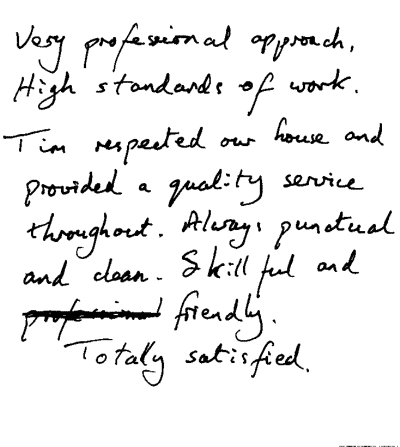 Very professional approach,
High standards of work.
Tim respected our house and
provided a quality service
throughout. Always punctual
and clean. Skillful and
professional friendly.
Totally satisfied.